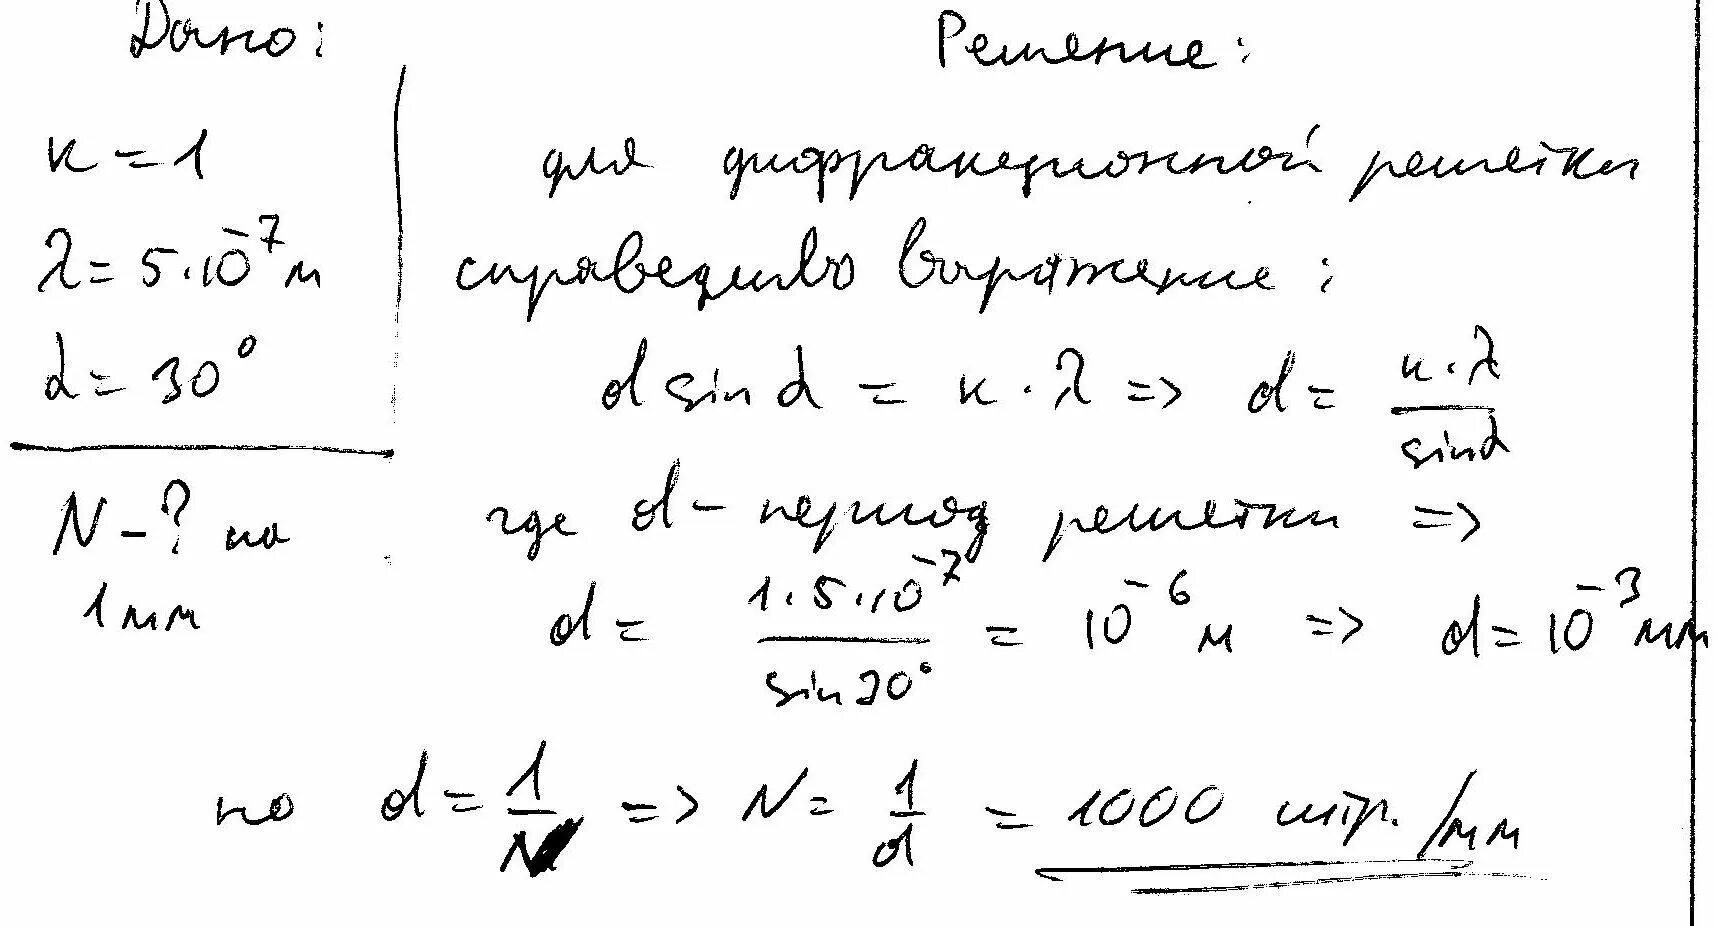 Дано:
к = 1
λ = 5·10⁻⁷ м
α = 30°
N - ? на
1 мм
Решение:
для дифракционной решетки
справедливо выражение:
d sin α = к · λ => d = к·λ / sin α
где d - период решетки =>
d = 1·5·10⁻⁷ / sin 30° = 10⁻⁶ м => d = 10⁻³ мм
но d = 1/N => N = 1/d = 1000 штр./мм